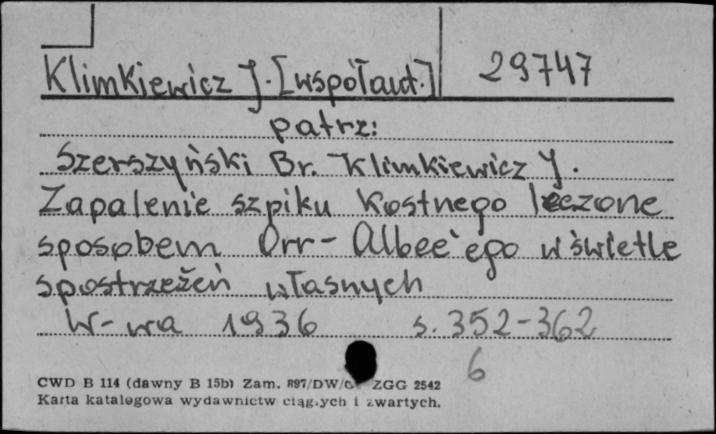 Klimkiewicz J. [współaut.] 29747
patrz:
Szerszyński Br. Klimkiewicz J.
Zapalenie szpiku kostnego leczone
sposobem Orr-Albee'ego w świetle
spostrzeżeń własnych
W-wa 1936 s. 352-362
6
CWD B 114 (dawny B 15b) Zam. 897/DW/ ZGG 2542
Karta katalogowa wydawnictw ciągłych i zwartych.